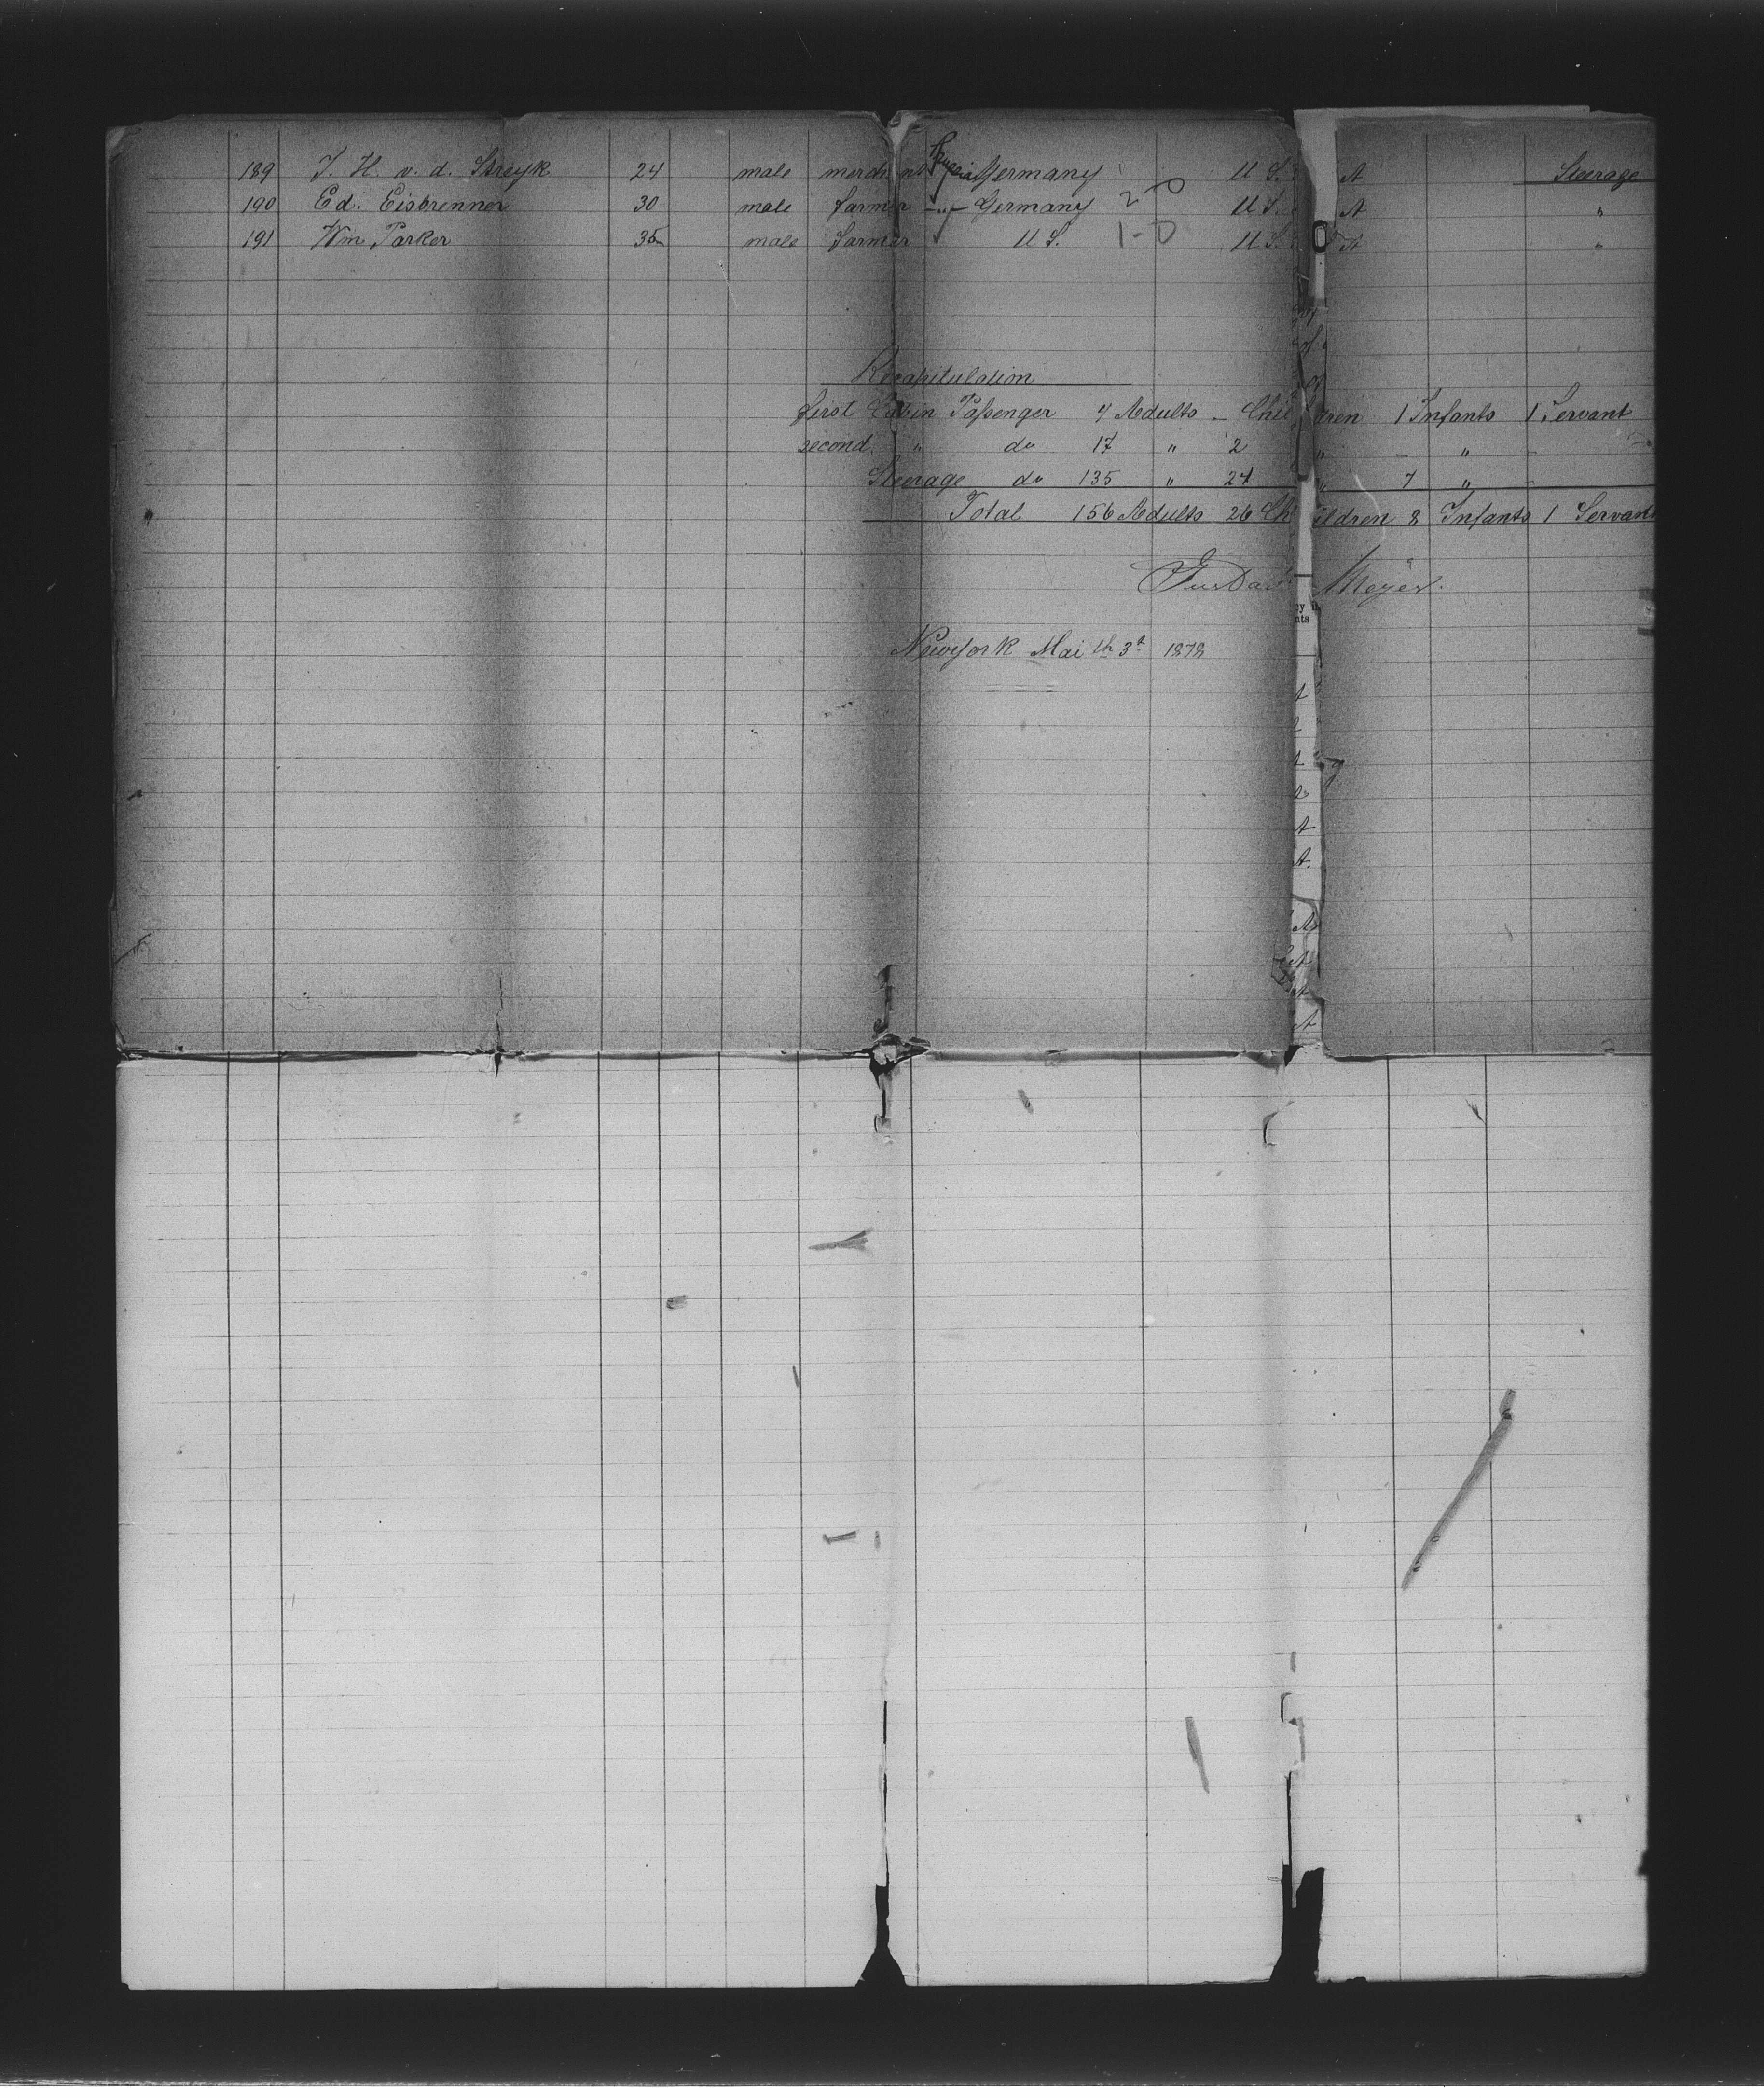 189 J. H. v. d. Streyk 24 male merchant Prussia Germany U S. A Steerage
190 Ed. Eisbrenner 30 male farmer -"- Germany 2-0 U S. A "
191 Wm Parker 35 male farmer U S. 1-0 U S. A "
Recapitulation
first Cabin Passenger 4 Adults - Children 1 Infants 1 Servant
second " do 17 " 2 " - " -
Steerage do 135 " 24 " 7 " -
Total 156 Adults 26 Children 8 Infants 1 Servant
Gustav Meyer.
Newyork Mai th 3d 1878